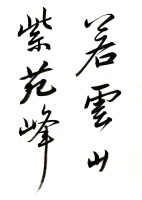 若雲山
紫苑峰